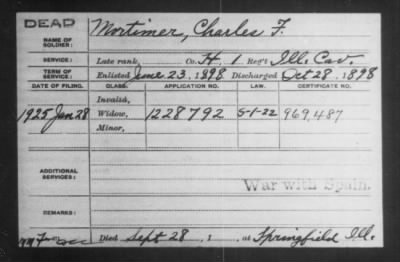 DEAD
NAME OF SOLDIER: Mortimer, Charles F.
SERVICE: Late rank, Co. H. 1 Reg't Ill. Cav.
TERM OF SERVICE: Enlisted June 23, 1898 Discharged Oct 28, 1898
DATE OF FILING. CLASS. APPLICATION NO. LAW. CERTIFICATE NO.
Invalid,
1925 Jan 28 Widow, 1228792 5-1-22 969,487
Minor,
ADDITIONAL SERVICES:
War with Spain.
REMARKS:
Died Sept 28, 1 , at Springfield Ill.